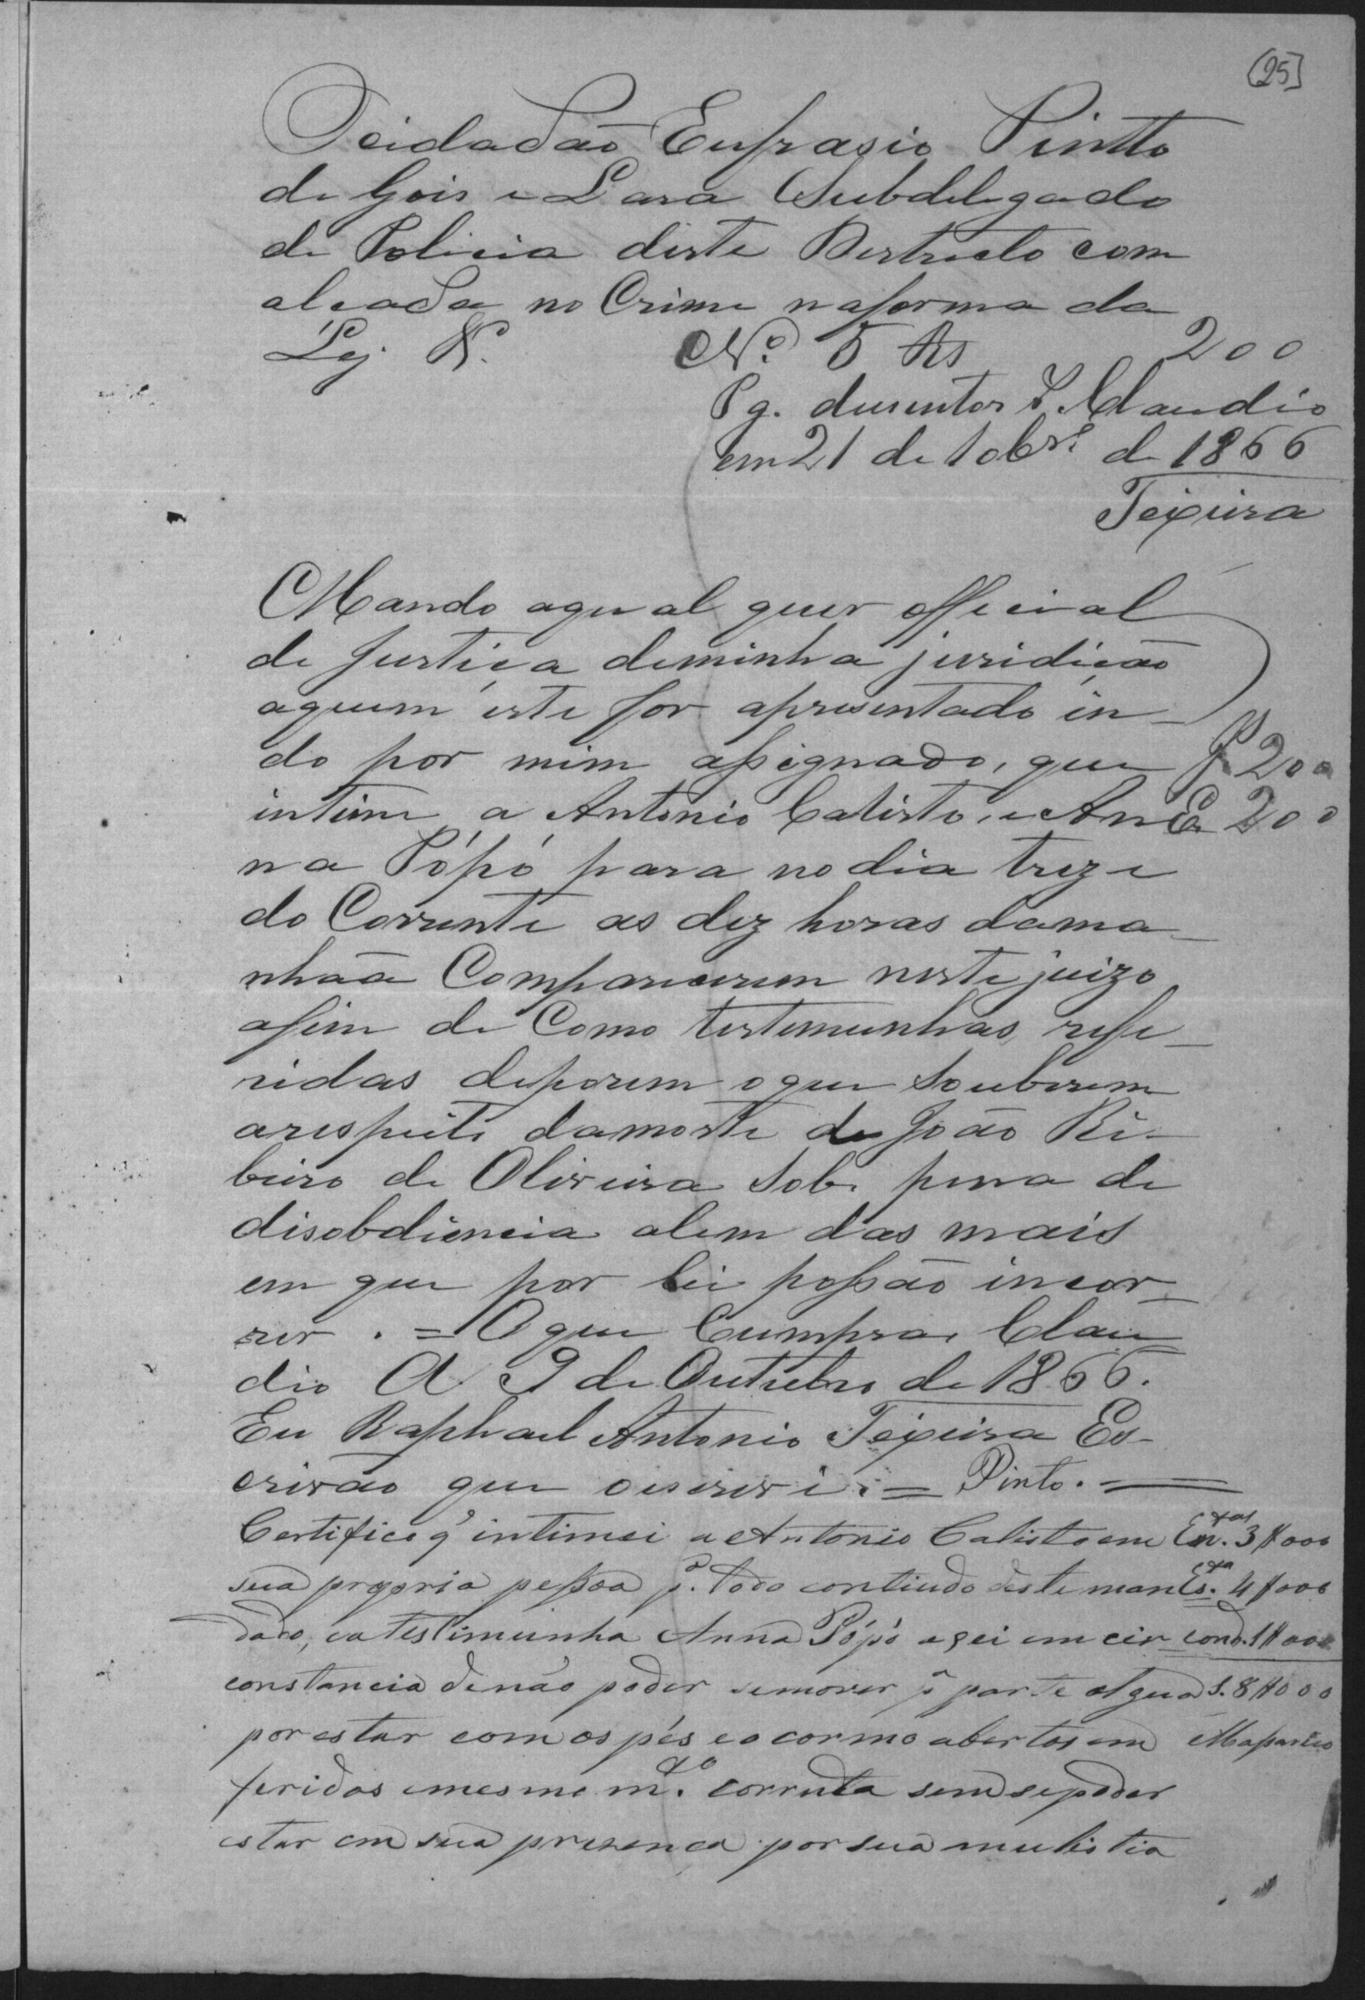 (25)
O cidadão Eufrasio Pintto
de Gois e Lara Subdelegado
de Policia deste Destricto com
alcada no Crime na forma da
Lej. V.
No. 5 Rs 200
Pg. dusentos r. Claudio
em 21 de 10br.e de 1866
Teixeira
Mando aqual quer official
de Justiça deminha juridição
aquem este for apresentado in-
do por mim assignado, que
intime a Antonio Calisto, e An-
na Pópó para no dia treze
do Corrente as dez horas dama-
nhaã Comparecerem neste juizo
afim de Como testemunhas refe-
ridas deporem oque Souberem
arespeito damorte de João Ri-
beiro de Oliveira Sob pena de
disobdiencia alem das mais
em que por lei possão incor-
rer. = O que Cumpra. Clau
dio A 9 de Outubro de 1866.
Eu Raphael Antonio Teixeira Es-
crivão que oescrevi. = Pinto. =
200
200
Certifico q' intimei a Antonio Calisto em
sua propria pessoa p.ª todo contiudo deste man
dado, ea testimunha Anna Pópó a xei em cir
constancia denão poder semover p.ª parte algua
por estar com os pés eo cormo abertos em
feridas emesmo m.to corruta sem sepoder
estar em sua presença por sua mulistia
3$000
4$000
cond. 1$000
S. 8$000